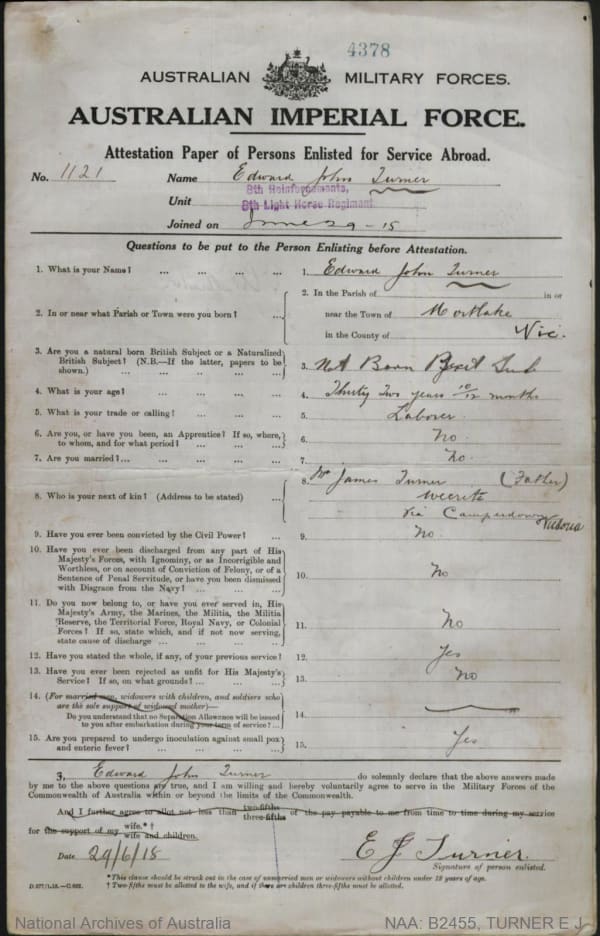 4378
AUSTRALIAN MILITARY FORCES.
AUSTRALIAN IMPERIAL FORCE.
Attestation Paper of Persons Enlisted for Service Abroad.
No. 1121 Name Edward John Turner
Unit 8th Reinforcements,
8th Light Horse Regiment
Joined on June 29-15
Questions to be put to the Person Enlisting before Attestation.
1. What is your Name? ... ... ... ... 1. Edward John Turner
2. In or near what Parish or Town were you born? ... 2. In the Parish of in or
near the Town of Mortlake
in the County of Vic.
3. Are you a natural born British Subject or a Naturalized
British Subject? (N.B.—If the latter, papers to be
shown.) ... ... ... ... ... 3. Nat Born Brit Sub
4. What is your age? ... ... ... ... 4. Thirty Two years 10/12 months
5. What is your trade or calling? ... ... ... 5. Laborer
6. Are you, or have you been, an Apprentice? If so, where,
to whom, and for what period? ... ... ... 6. No
7. Are you married? ... ... ... ... ... 7. No.
8. Who is your next of kin? (Address to be stated) ... 8. Mr James Turner (Father)
Weerite
Via Camperdown Victoria
9. Have you ever been convicted by the Civil Power? ... 9. No.
10. Have you ever been discharged from any part of His
Majesty's Forces, with Ignominy, or as Incorrigible and
Worthless, or on account of Conviction of Felony, or of a
Sentence of Penal Servitude, or have you been dismissed
with Disgrace from the Navy? ... ... ... 10. No
11. Do you now belong to, or have you ever served in, His
Majesty's Army, the Marines, the Militia, the Militia
Reserve, the Territorial Force, Royal Navy, or Colonial
Forces? If so, state which, and if not now serving,
state cause of discharge ... ... ... ... 11. No
12. Have you stated the whole, if any, of your previous service? 12. Yes
13. Have you ever been rejected as unfit for His Majesty's
Service? If so, on what grounds? ... ... ... 13. No
14. (For married men, widowers with children, and soldiers who
are the sole support of widowed mother)—
Do you understand that no Separation Allowance will be issued
to you after embarkation during your term of service? ... 14.
15. Are you prepared to undergo inoculation against small pox
and enteric fever? ... ... ... ... 15. Yes
I, Edward John Turner do solemnly declare that the above answers made
by me to the above questions are true, and I am willing and hereby voluntarily agree to serve in the Military Forces of the
Commonwealth of Australia within or beyond the limits of the Commonwealth.
And I further agree to allot not less than two-fifths three-fifths of the pay payable to me from time to time during my service
for the support of my wife.*†
wife and children.
Date 29/6/15 E J Turner.
Signature of person enlisted.
*This clause should be struck out in the case of unmarried men or widowers without children under 18 years of age.
† Two-fifths must be allotted to the wife, and if there are children three-fifths must be allotted.
National Archives of Australia NAA: B2455, TURNER E J